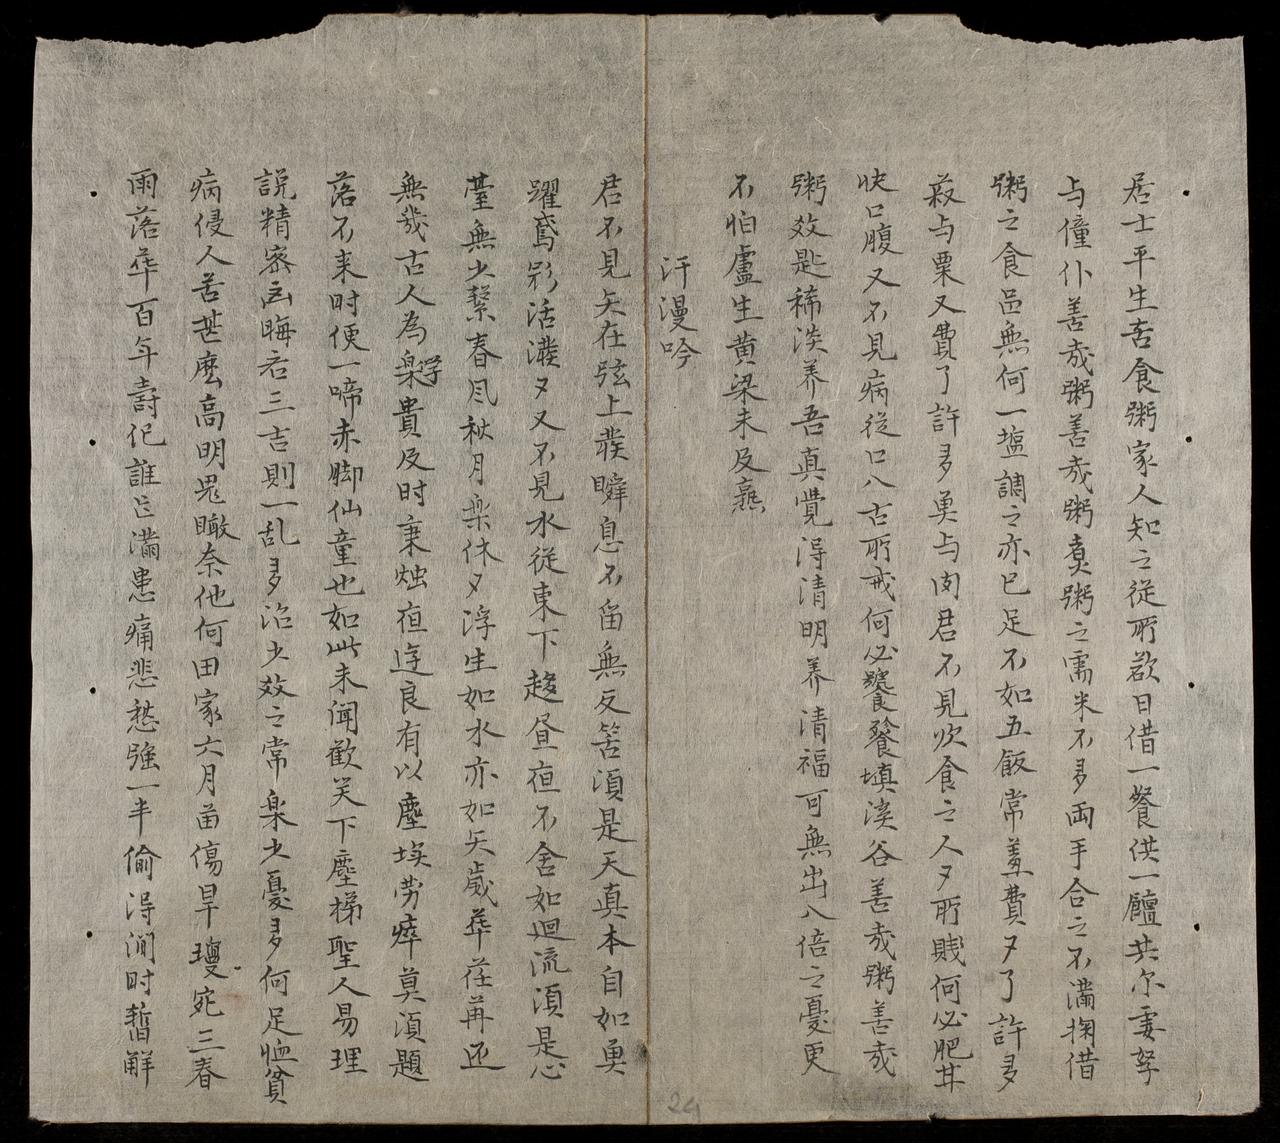 居士平生苦食粥家人知之從所欲日借一餐供一饘共尔妻孥
与僮仆善哉粥善哉粥煑粥之需米不多両手合之不滿掬借
粥之食品無何一塩調之亦已足不如五飯常羞費夕了許多
菽与粟又費了許多臾与肉君不見吹食之人夕所賎何必肥甘
快口腹又不見病從口入古所戒何必饔飱填溪谷善哉粥善哉
粥效匙稀淡养吾真覺淂清明养清福可無出入倍之憂更
不怕盧生黄梁未及熟
汗漫吟
君不見矢在弦上發瞬息不畄無反筈湏是天真本自如臾
躍鳶飛活潑夕又不見水從東下趍昼夜不舍如迴流湏是心
䑓無少繋春风秋月楽休夕浮生如水亦如矢歲华荏苒还
無㡬古人為楽學貴及时秉烛夜逰良有以塵埃劳瘁莫湏題
落不来时便一啼赤脚仙童也如此未闻歡笑下塵梯聖人易理
説精宻凶晦吝三吉則一乱多治少效之常楽少憂多何足恤貧
病侵人苦甚麽高明鬼瞰奈他何田家六月苗傷旱瓊宛三春
雨落华百年壽紀誰㠯滿患痛悲愁強一半偷淂閒时暫解
24